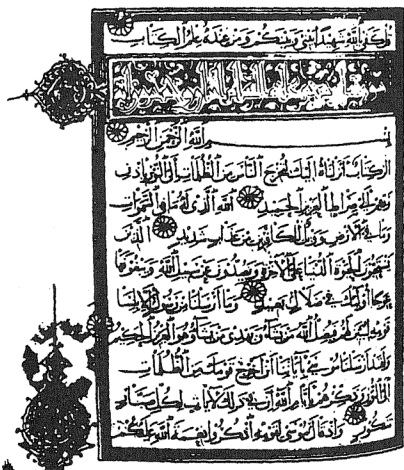 قل كفى بالله شهيدا بيني وبينكم ومن عنده علم الكتاب
بسم الله الرحمن الرحيم
الر كتاب أنزلناه إليك لتخرج الناس من الظلمات إلى النور بإذن
ربهم إلى صراط العزيز الحميد الله الذي له ما في السموات
وما في الأرض وويل للكافرين من عذاب شديد الذين
يستحبون الحيوة الدنيا على الآخرة ويصدون عن سبيل الله ويبغونها
عوجا أولئك في ضلال بعيد وما أرسلنا من رسول إلا بلسان
قومه ليبين لهم فيضل الله من يشاء ويهدي من يشاء وهو العزيز الحكيم
ولقد أرسلنا موسى بآياتنا أن أخرج قومك من الظلمات
إلى النور وذكرهم بأيام الله إن في ذلك لآيات لكل صبار
شكور وإذ قال موسى لقومه اذكروا نعمة الله عليكم